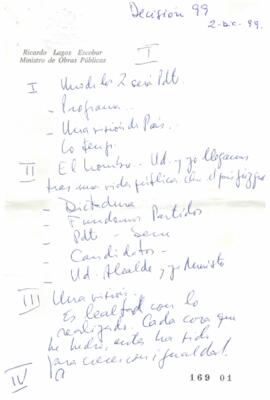 Decisión 99
2-Dic. 99.
Ricardo Lagos Escobar
Ministro de Obras Públicas
I
I Uno de los 2 será Pdt.
- Programa.
- Una visión de País.
Lo tengo.
II El hombre. Ud. y yo llegamos
tras una vida pública
- Dictadura
- Fundamos Partidos
- Pdt -
- Candidatos -
- Ud. Alcalde y yo Ministro
III Una visión.
Es lealtad con lo
realizado. Cada cosa que
he hecho, antes ha sido
para crecer con igualdad!
IV
169 01